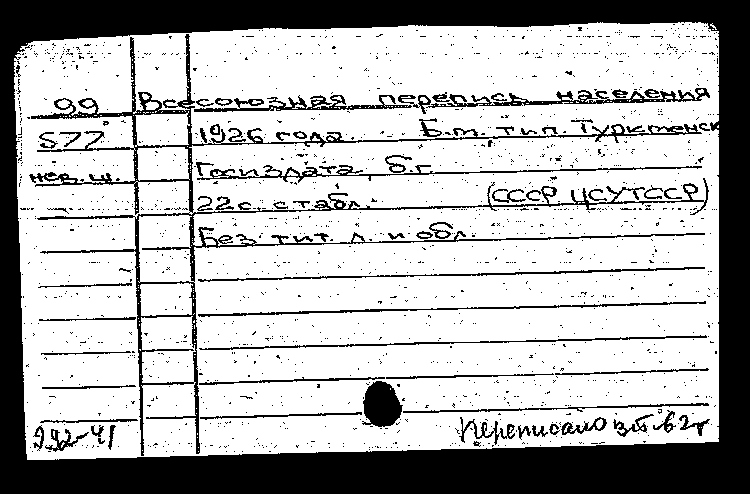 99 Всесоюзная перепись населения
S77 1926 года. Б.м. тип. Турктенск
нев. ш. Госиздата, б.г.
22 с. с табл. (СССР ЦСУТССР)
Без тит. л. и обл.
292-41 Переписано 62 г